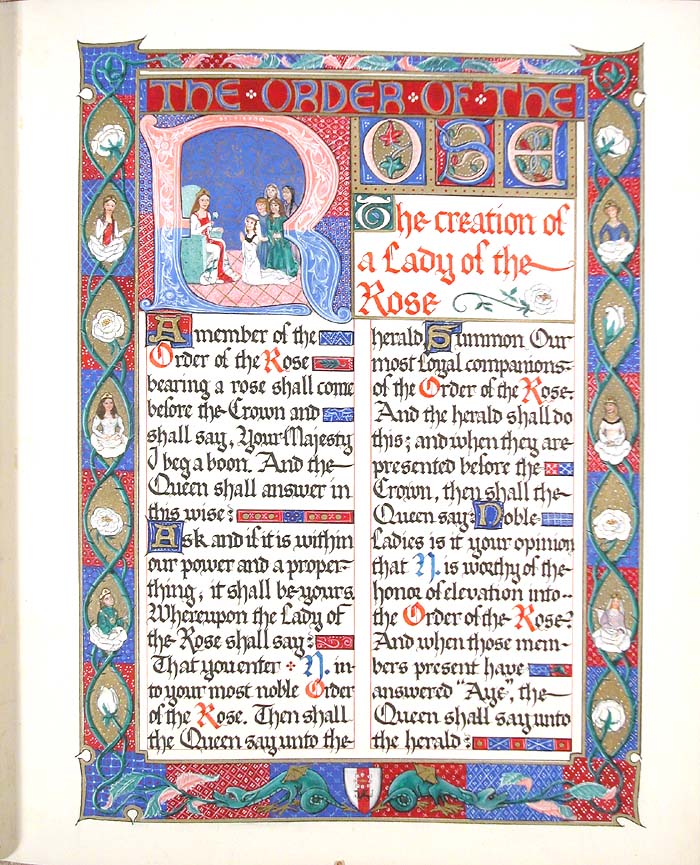 THE ORDER OF THE
ROSE
The creation of
a Lady of the
Rose
A member of the
Order of the Rose
bearing a rose shall come
before the Crown and
shall say, Your Majesty
I beg a boon. And the
Queen shall answer in
this wise:
Ask and if it is within
our power and a proper
thing, it shall be yours.
Whereupon the Lady of
the Rose shall say:
That you enter N. in
to your most noble Order
of the Rose. Then shall
the Queen say unto the
herald Summon Our
most loyal companions
of the Order of the Rose.
And the herald shall do
this; and when they are
presented before the
Crown, then shall the
Queen say: Noble
Ladies is it your opinion
that N. is worthy of the
honor of elevation into
the Order of the Rose?
And when those mem-
bers present have
answered "Aye", the
Queen shall say unto
the herald: